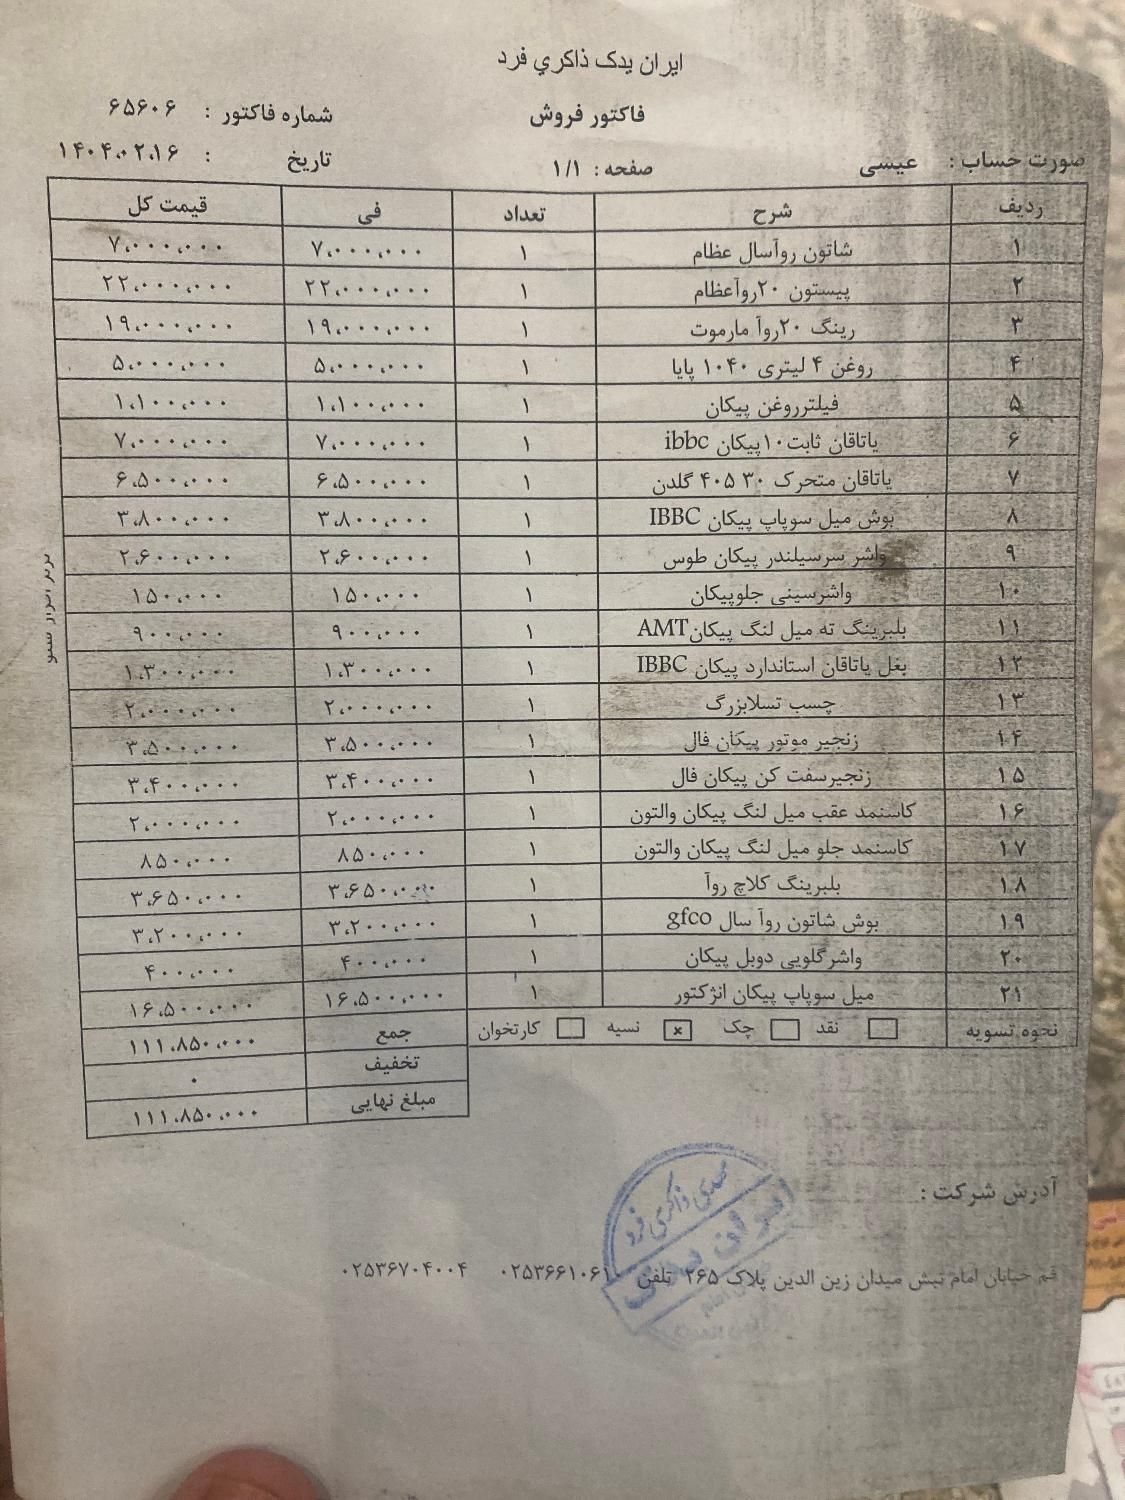 ایران یدک ذاکري فرد
فاکتور فروش
شماره فاکتور : ۶۵۶۰۶
صورت حساب : عیسی صفحه : ۱/۱ تاریخ : ۱۴۰۴،۰۲،۱۶
ردیف شرح تعداد فی قیمت کل
۱ شاتون روآسال عظام ۱ ۷،۰۰۰،۰۰۰ ۷،۰۰۰،۰۰۰
۲ پیستون ۲۰روآعظام ۱ ۲۲،۰۰۰،۰۰۰ ۲۲،۰۰۰،۰۰۰
۳ رینگ ۲۰روآ مارموت ۱ ۱۹،۰۰۰،۰۰۰ ۱۹،۰۰۰،۰۰۰
۴ روغن ۴ لیتری ۱۰۴۰ پایا ۱ ۵،۰۰۰،۰۰۰ ۵،۰۰۰،۰۰۰
۵ فیلترروغن پیکان ۱ ۱،۱۰۰،۰۰۰ ۱،۱۰۰،۰۰۰
۶ یاتاقان ثابت۱۰پیکان ibbc ۱ ۷،۰۰۰،۰۰۰ ۷،۰۰۰،۰۰۰
۷ یاتاقان متحرک ۳۰ ۴۰۵ گلدن ۱ ۶،۵۰۰،۰۰۰ ۶،۵۰۰،۰۰۰
۸ بوش میل سوپاپ پیکان IBBC ۱ ۳،۸۰۰،۰۰۰ ۳،۸۰۰،۰۰۰
۹ واشر سرسیلندر پیکان طوس ۱ ۲،۶۰۰،۰۰۰ ۲،۶۰۰،۰۰۰
۱۰ واشرسینی جلوپیکان ۱ ۱۵۰،۰۰۰ ۱۵۰،۰۰۰
۱۱ بلبرینگ ته میل لنگ پیکانAMT ۱ ۹۰۰،۰۰۰ ۹۰۰،۰۰۰
۱۲ بغل یاتاقان استاندارد پیکان IBBC ۱ ۱،۳۰۰،۰۰۰ ۱،۳۰۰،۰۰۰
۱۳ چسب تسلابزرگ ۱ ۲،۰۰۰،۰۰۰ ۲،۰۰۰،۰۰۰
۱۴ زنجیر موتور پیکان فال ۱ ۳،۵۰۰،۰۰۰ ۳،۵۰۰،۰۰۰
۱۵ زنجیرسفت کن پیکان فال ۱ ۳،۴۰۰،۰۰۰ ۳،۴۰۰،۰۰۰
۱۶ کاسنمد عقب میل لنگ پیکان والتون ۱ ۲،۰۰۰،۰۰۰ ۲،۰۰۰،۰۰۰
۱۷ کاسنمد جلو میل لنگ پیکان والتون ۱ ۸۵۰،۰۰۰ ۸۵۰،۰۰۰
۱۸ بلبرینگ کلاچ روآ ۱ ۳،۶۵۰،۰۰۰ ۳،۶۵۰،۰۰۰
۱۹ بوش شاتون روآ سال gfco ۱ ۳،۲۰۰،۰۰۰ ۳،۲۰۰،۰۰۰
۲۰ واشرگلویی دوبل پیکان ۱ ۴۰۰،۰۰۰ ۴۰۰،۰۰۰
۲۱ میل سوپاپ پیکان انژکتور ۱ ۱۶،۵۰۰،۰۰۰ ۱۶،۵۰۰،۰۰۰
نحوه تسویه نقد چک x نسیه کارتخوان جمع ۱۱۱،۸۵۰،۰۰۰
تخفیف ۰
مبلغ نهایی ۱۱۱،۸۵۰،۰۰۰
آدرس شرکت :
قم خیابان امام نبش میدان زین الدین پلاک ۲۶۵ تلفن ۰۲۵۳۶۷۰۴۰۰۴
ذاکری فرد
ایران یدک